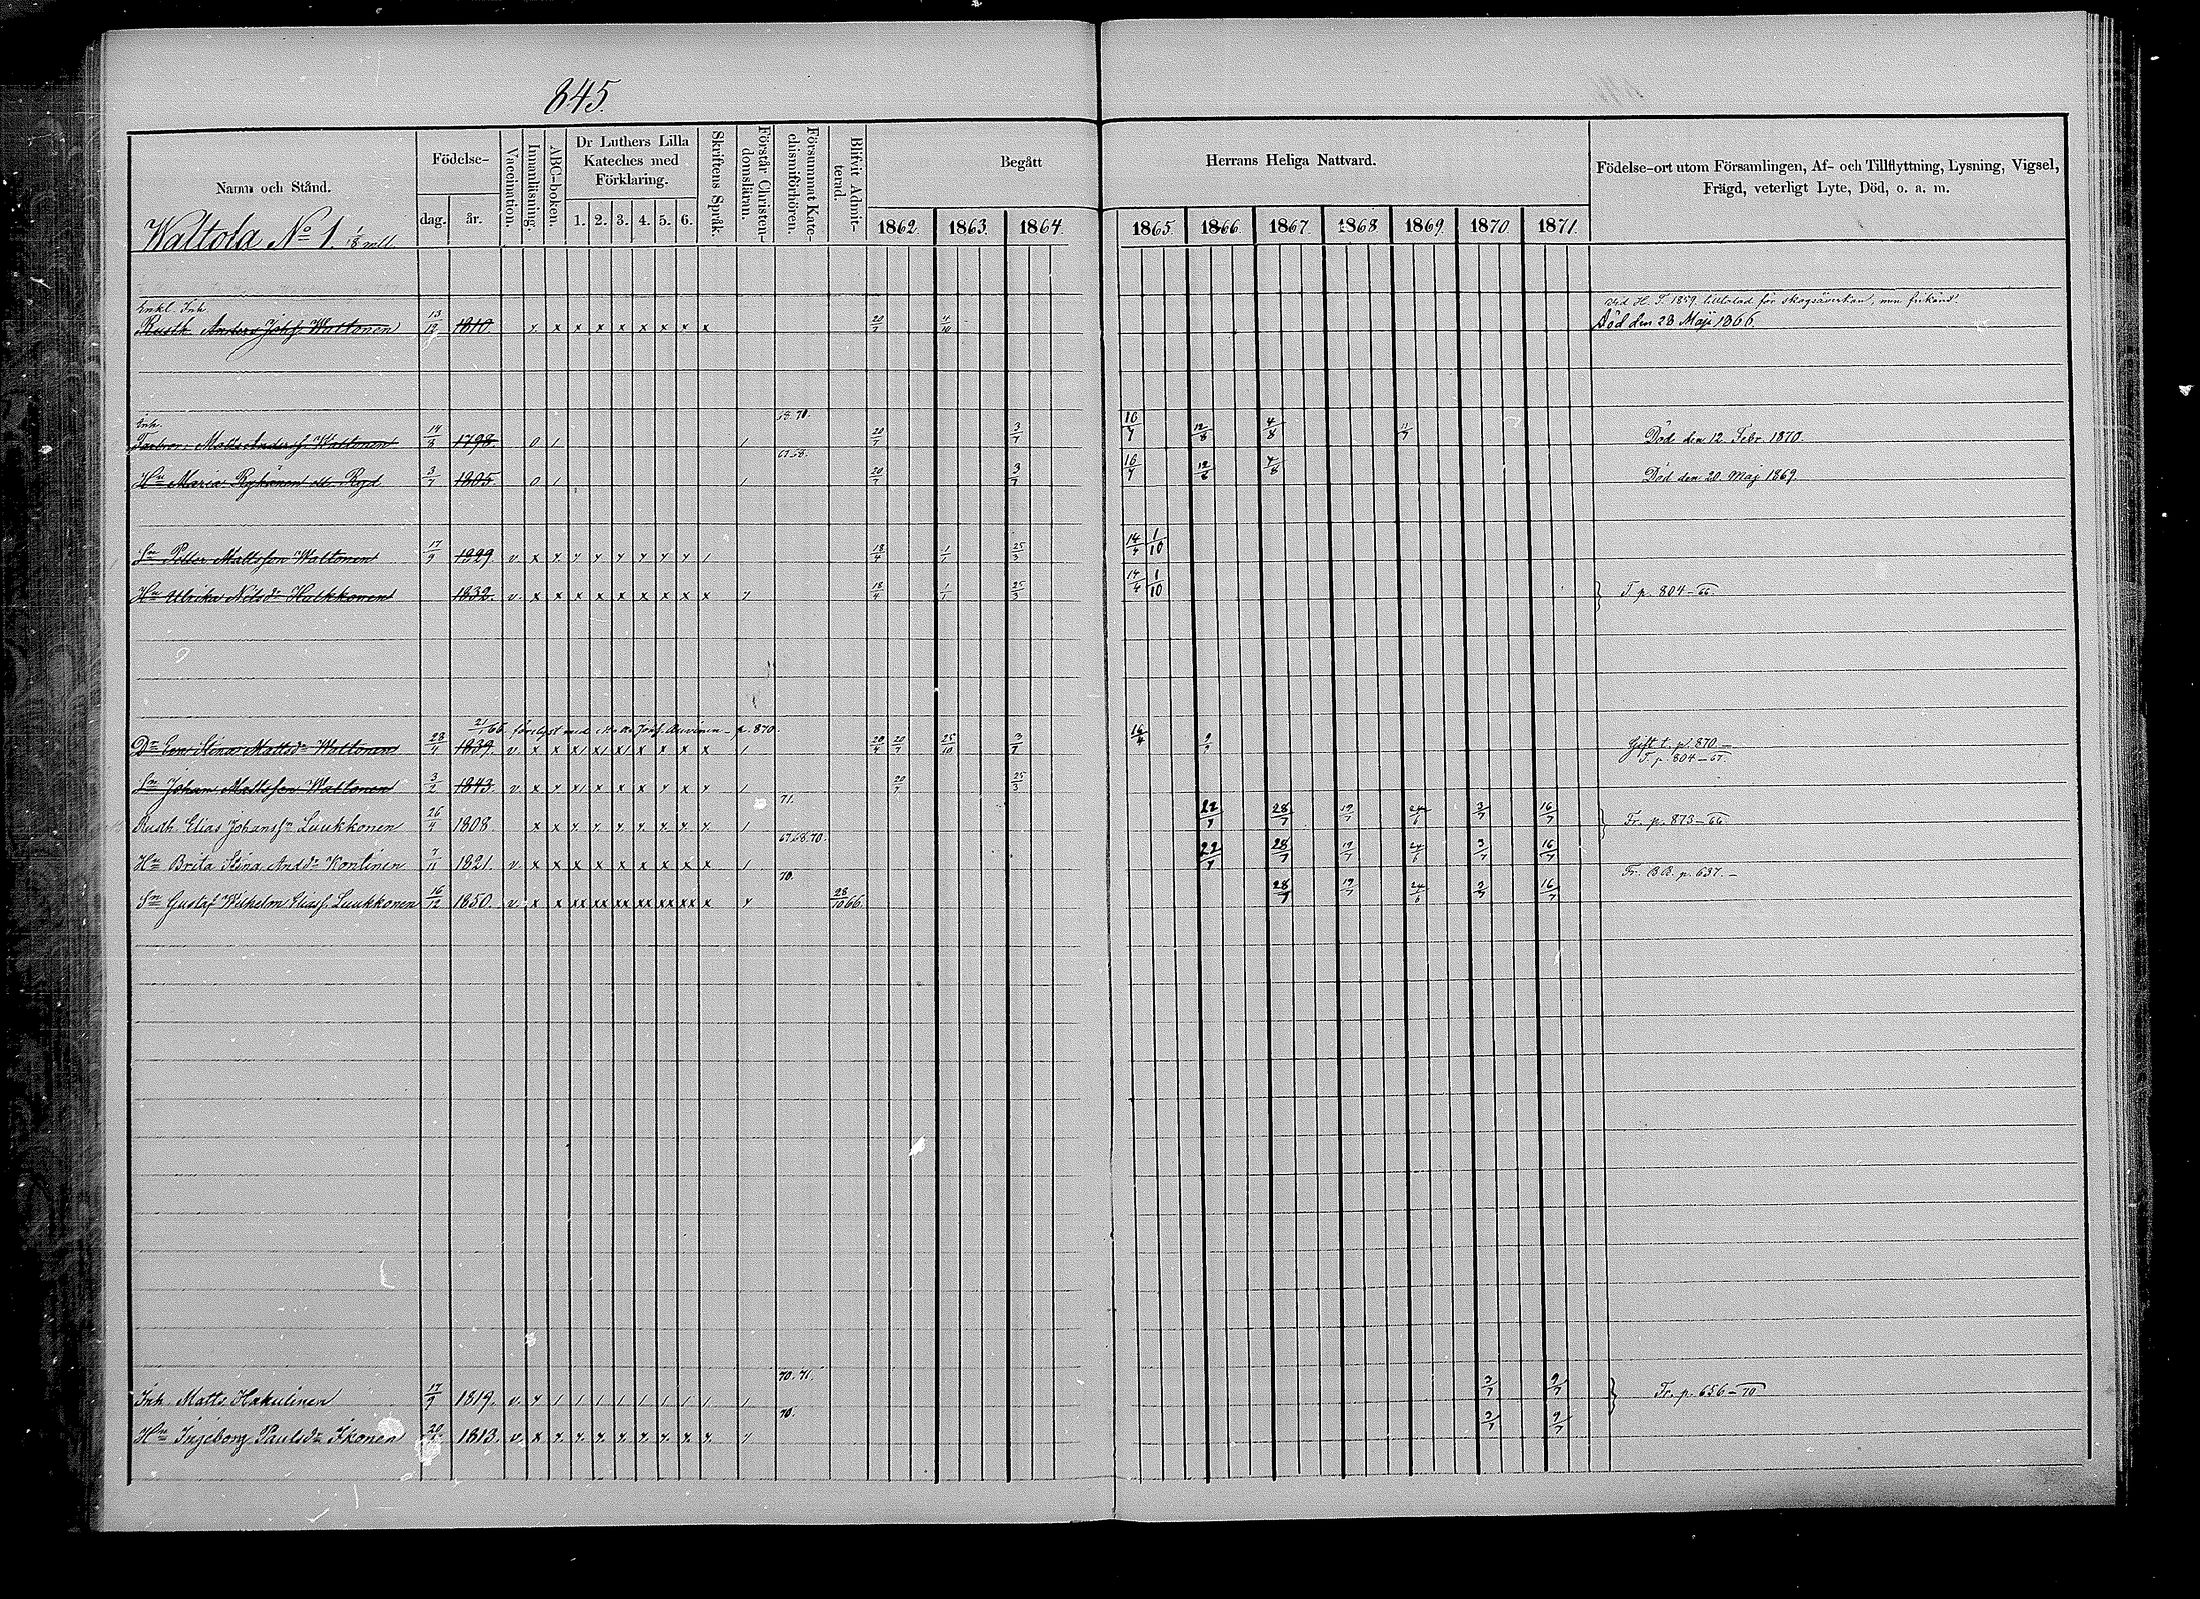 845.
Namn och Stånd.
Födelse-
dag. år.
Vaccination.
Innanläsning.
ABC-boken.
Dr Luthers Lilla Kateches med Förklaring.
1. 2. 3. 4. 5. 6.
Skriftens Språk.
Förstår Christendomsläran.
Försummat Katechismiförhören.
Blifvit Admitterad.
Begått Herrans Heliga Nattvard.
1862. 1863. 1864. 1865 1866. 1867. 1868 1869. 1870. 1871.
Födelse-ort utom Församlingen, Af- och Tillflyttning, Lysning, Vigsel,
Frägd, veterligt Lyte, Död, o. a. m.
Waltola No 1 1/8 mtl.
Enkl. Inh.
Rusth. Anders Johsn Waltonen 1810 x x x x x x x x x 20/7 4/10 Död den 28 Maji 1866.
Inh. 68.70.
Matts Andersn Waltonen 14/8 1798 0 1 1 20/7 3/7 16/7 12/8 4/8 11/7 Död den 12 Febr. 1870.
67.68.
Hu Maria Rykänen 3/7 1805. 0 1 1 20/7 3/7 16/7 12/8 4/8 Död den 20 Maj 1869.
Sn Petter Mattsson Waltonen 17/9 1829. v x x x x x x x x 1 18/4 1/1 25/3 14/4 1/10
Hu Ulrika Nilsdr Hulkkonen 1832. v. x x x x x x x x x 18/4 1/1 25/3 14/4 1/10 T. p. 804-66.
21/1 66. förelyst med Matts Johsn p. 870.
Dr Eva Stina Mattsdr Waltonen 28/4 1839. 20/4 20/7 25/10 3/7 16/4 9/9 Gift t. p. 870
T. p. 804-67.
Sn Johan Mattsson Waltonen 3/2 1843. v. 20/7 25/3
71.
Rusth. Elias Johansn Luukkonen 26/4 1808 x x x x x x x x x 1 22/7 28/7 19/7 24/6 3/7 16/7 Fr. p. 873-66.
67.68.70.
Hu Brita Stina Andsdr Kontinen 7/11 1821. v. x x x x x x x x x 1 22/7 28/7 19/7 24/6 3/7 16/7
70. Fr. BB. p. 637.-
Sn Gustaf Wilhelm Eliasn Luukkonen 16/12 1850. v. x x xx xx xx xx xx xx x 28/10 66. 28/7 19/7 24/6 3/7 16/7
70. 71.
Inh. Matts Hakulinen 17/9 1819. v. x 1 1 1 1 1 1 1 1 1 3/7 9/7 Fr. p. 656-70
70.
Hu Ingeborg Paulsdr Ikonen 1813. v. x x x x x x x x x 3/7 9/7